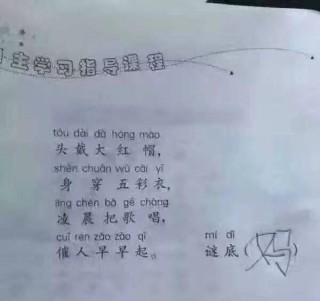 主学习指导课程
tóu dài dà hóng mào
头戴大红帽,
shēn chuān wǔ cǎi yī
身穿五彩衣,
líng chén bǎ gē chàng
凌晨把歌唱,
cuī rén zǎo zǎo qǐ mí dǐ
催人早早起。 谜底(妈)